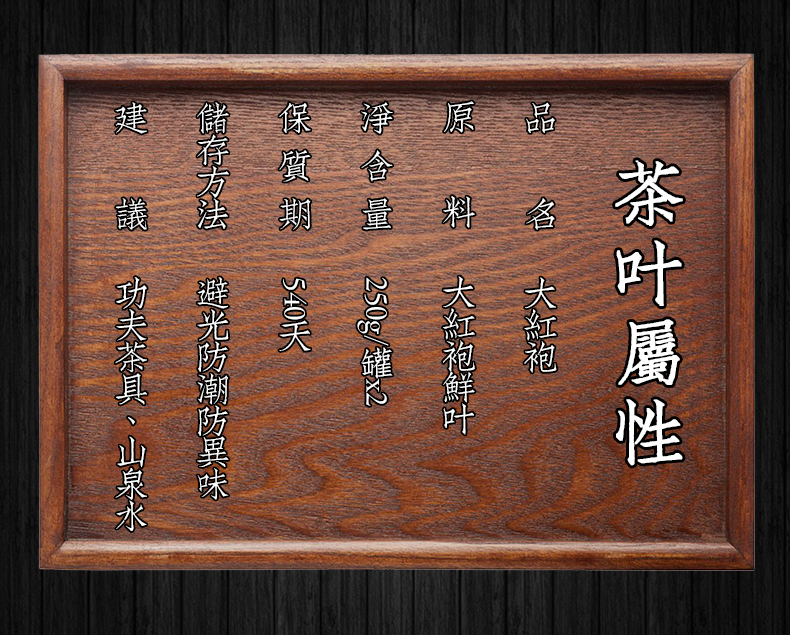 茶叶屬性
品名 大紅袍
原料 大紅袍鮮叶
淨含量 250g/罐x2
保質期 540天
儲存方法 避光防潮防異味
建議 功夫茶具、山泉水